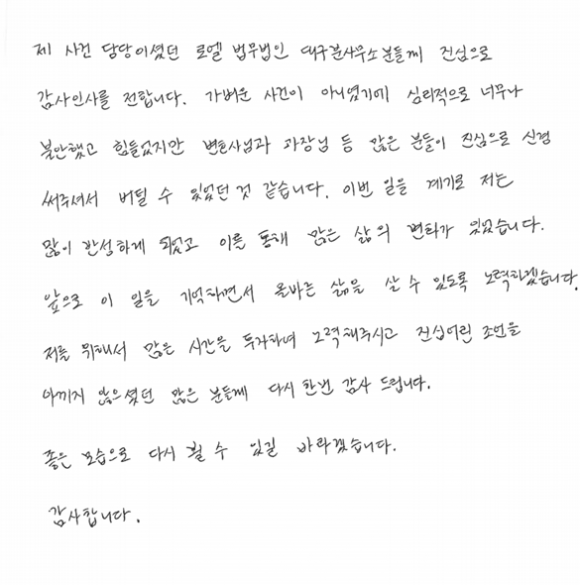 제 사건 담당이셨던 로엘 법무법인 대구분사무소분들께 진심으로
감사인사를 전합니다. 가벼운 사건이 아니였기에 심리적으로 너무나
불안했고 힘들었지만 변호사님과 과장님 등 많은 분들이 진심으로 신경
써주셔서 버틸 수 있었던 것 같습니다. 이번 일을 계기로 저는
많이 반성하게 되었고 이를 통해 많은 삶의 변화가 있었습니다.
앞으로 이 일을 기억하면서 올바른 삶을 살 수 있도록 노력하겠습니다.
저를 위해서 많은 시간을 투자하며 노력해주시고 진심어린 조언을
아끼지 않으셨던 많은 분들께 다시 한번 감사 드립니다.
좋은 모습으로 다시 뵐 수 있길 바라겠습니다.
감사합니다.